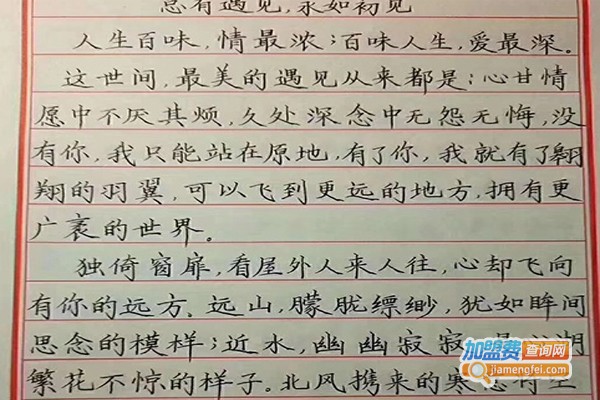 总有遇见，永如初见
人生百味，情最浓；百味人生，爱最深。
这世间，最美的遇见从来都是：心甘情
愿中不厌其烦，久处深念中无怨无悔，没
有你，我只能站在原地，有了你，我就有了翱
翔的羽翼，可以飞到更远的地方，拥有更
广袤的世界。
独倚窗扉，看屋外人来人往，心却飞向
有你的远方、远山，朦胧缥缈，犹如眸间
思念的模样；近水，幽幽寂寂，
繁花不惊的样子。北风携来的寒
加盟费查询网
jiamengfei.com